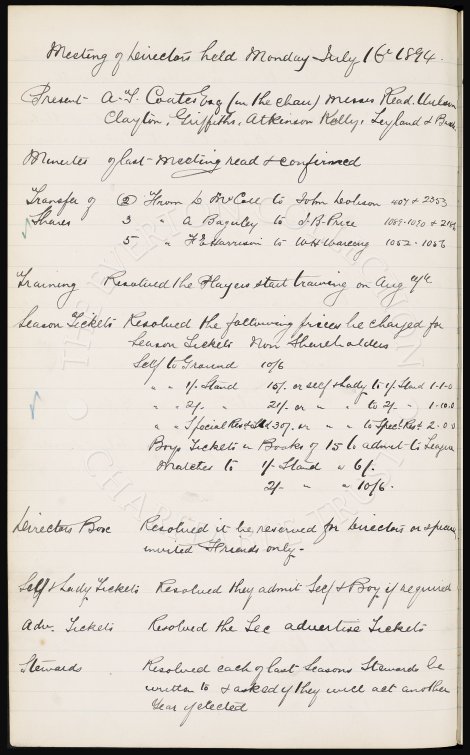 Meeting of Directors held Monday July 16th 1894.
Present A. T. Coates Esq (in the chair) Messrs Read.
Clayton, Griffiths, Atkinson Kelly, Leyland &
Minutes of last meeting read & confirmed
Transfer of Shares (2) From D McColl to John Dobson 407 & 2353
3 " A Baguley to J. B. Price 1089-1090 &
5 " F E Harrison to W H Wareing 1052 - 1056
Training Resolved the Players start training on Aug
Season Tickets Resolved the following prices be charged for
Season Tickets Non Shareholders
Self to Ground 10/6
" " 1/- Stand 15/- or self & Lady to 1/- Stand 1-1-0
" " 2/- " 21/- or " " to 2/- " 1-10-0
" " Special Res Std 30/- or " " to Spec Res 2-0-0
Boys Tickets in Books of 15 to admit to League
Matches to 1/- Stand " 6/-
2/- " " 10/6.
Directors Box Resolved it be reserved for Directors or
invited Friends only -
Self & Lady Tickets Resolved they admit Self & Boy if required
Adv. Tickets Resolved the Sec advertise Tickets
Stewards Resolved each of last Seasons Stewards be
written to & asked if they will act another
Year if elected
THE EVERTON COLLECTION
CHARITABLE TRUST